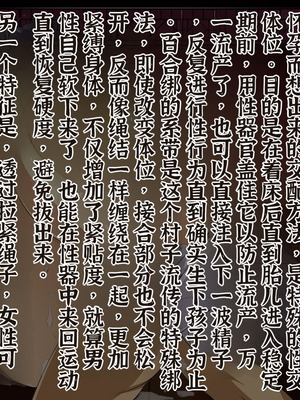 孕而想出来的交配方法，是特殊的性交
体位。目的是在着床后直到胎儿进入稳定
期前，用性器官盖住它以防止流产，万
一流产了，也可以直接注入下一波精子
，反复进行性行为直到确实生下孩子为止
。百合绑的系带是这个村子流传的特殊绑
法，即使改变体位，接合部分也不会松
开，反而像绳结一样缠绕在一起，更加
紧缚身体，不仅增加了紧贴度，就算男
性自己软下来了，也能在性器中来回运动
直到恢复硬度，避免拔出来。
另一个特征是，透过拉紧绳子，女性可